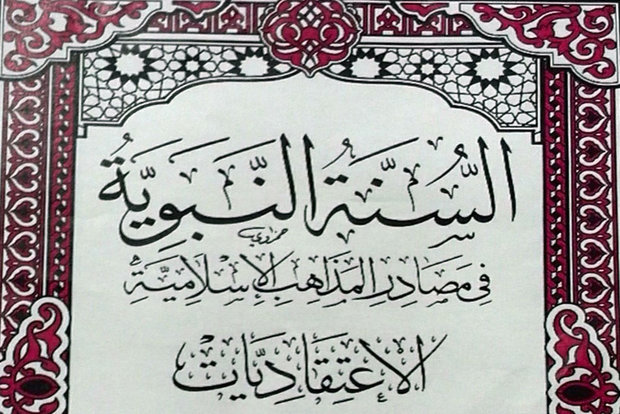 السُّنَّةُ النَّبَوِيَّةُ
فِي مَصَادِرِ المَذَاهِبِ الإِسْلَامِيَّةِ
الإِعْتِقَادِيَّات